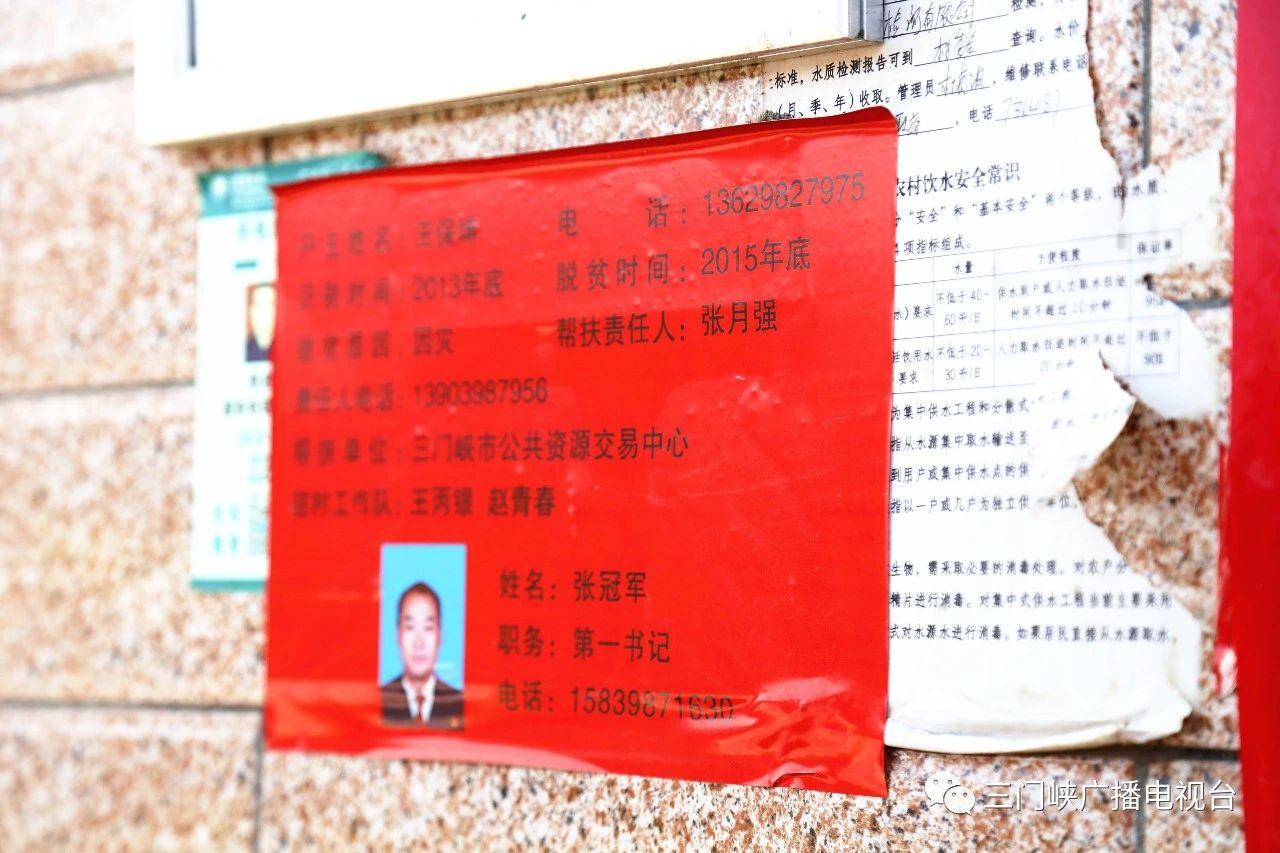 户主姓名：王保坤 电 话：13629827975
识别时间：2013年底 脱贫时间：2015年底
致贫原因：因灾 帮扶责任人：张月强
责任人电话：13903987956
帮扶单位：三门峡市公共资源交易中心
驻村工作队：王丙银 赵青春
姓名：张冠军
职务：第一书记
电话：15839871630
检测，
标准，水质检测报告可到 查询。水价
（月、季、年）收取。管理员 ，维修联系电话
，电话
农村饮水安全常识
分“安全”和“基本安全”两个等级，由水质、
4项指标组成。
水量 方便程度 保证率
水）要求 不低于40-60升/日 供水到户或人力取水往返时间不超过10分钟
活饮用水要求 不低于20-30升/日 人力取水往返时间不超过20分钟 不低于90%
为集中供水工程和分散式
指从水源集中取水输送至
到用户或集中供水点的供
指以一户或几户为独立供 单位，
生物，需采取必要的消毒处理。对农户分
精片进行消毒。对集中式供水工程当前主要采用
式对水源水进行消毒。如果居民直接从水源取水，
三门峡广播电视台